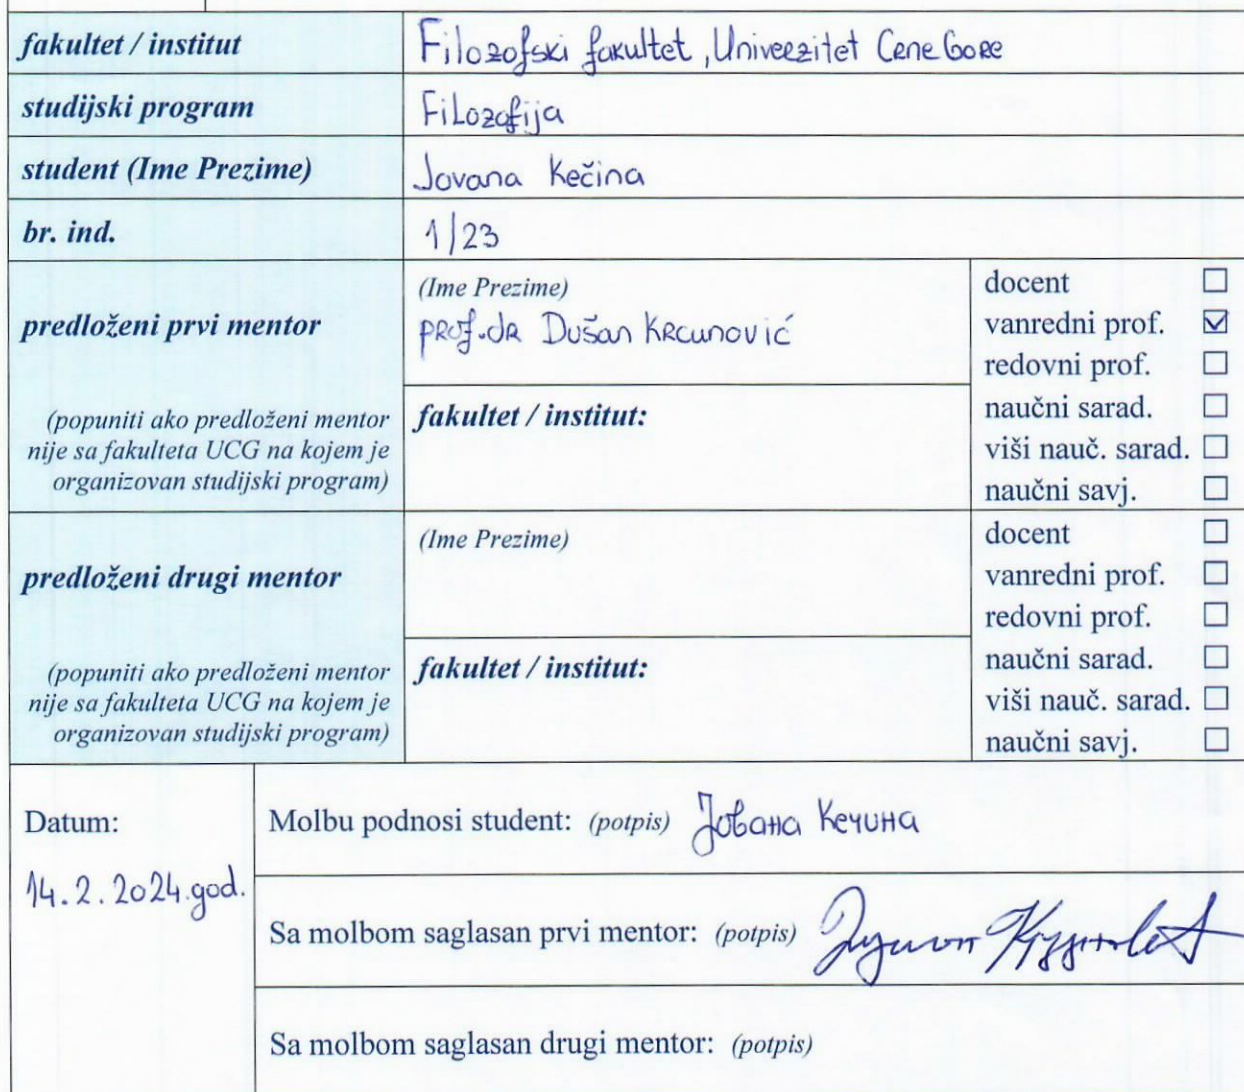 fakultet / institut
Filozofski fakultet, Univerzitet Crne Gore
studijski program
Filozofija
student (Ime Prezime)
Jovana Kečina
br. ind.
1/23
predloženi prvi mentor
(popuniti ako predloženi mentor
nije sa fakulteta UCG na kojem je
organizovan studijski program)
(Ime Prezime)
prof.dr Dušan Krcunović
fakultet / institut:
docent ☐
vanredni prof. ☑
redovni prof. ☐
naučni sarad. ☐
viši nauč. sarad. ☐
naučni savj. ☐
predloženi drugi mentor
(popuniti ako predloženi mentor
nije sa fakulteta UCG na kojem je
organizovan studijski program)
(Ime Prezime)
fakultet / institut:
docent ☐
vanredni prof. ☐
redovni prof. ☐
naučni sarad. ☐
viši nauč. sarad. ☐
naučni savj. ☐
Datum:
14.2.2024.god.
Molbu podnosi student: (potpis) Јована Кечина
Sa molbom saglasan prvi mentor: (potpis)
Sa molbom saglasan drugi mentor: (potpis)